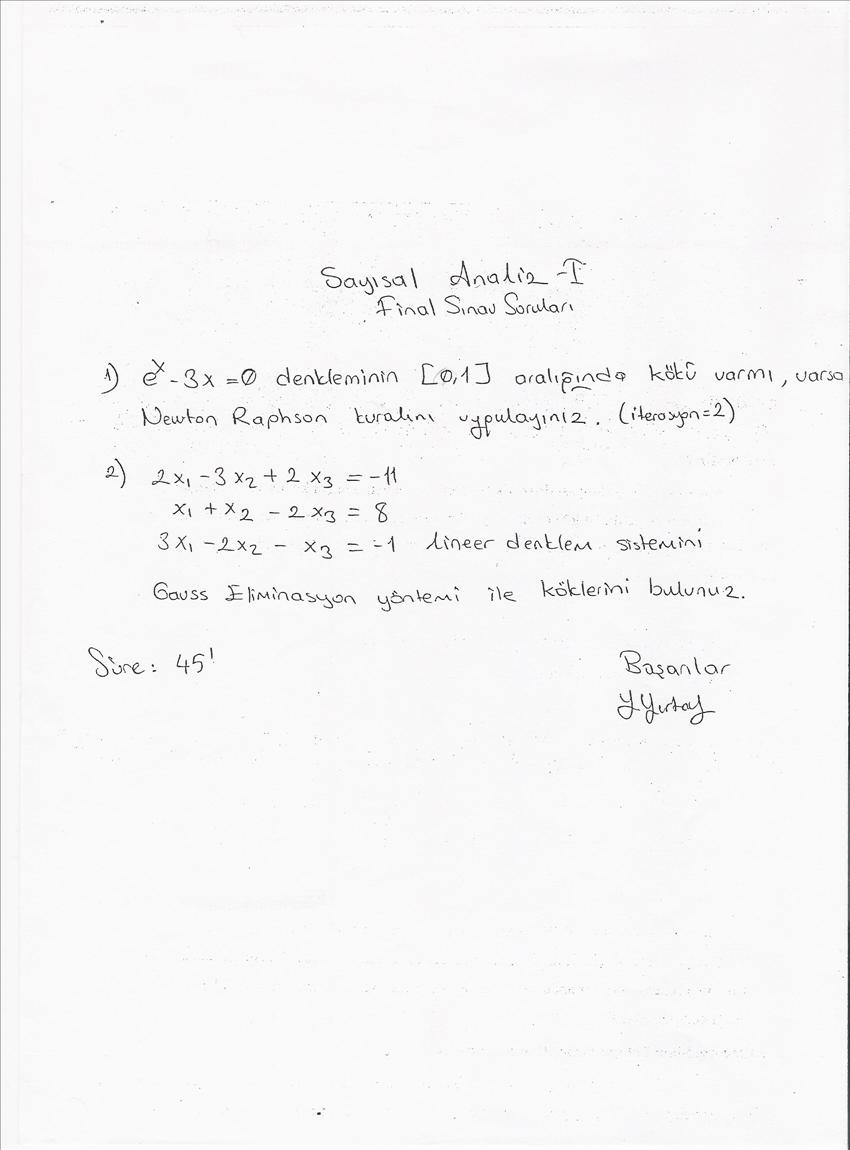 Sayısal Analiz-I
Final Sınav Soruları
1) eˣ - 3x = 0 denkleminin [0,1] aralığında kökü varmı, varsa
Newton Raphson kuralını uygulayınız. (iterasyon=2)
2) 2x₁ - 3x₂ + 2x₃ = -11
x₁ + x₂ - 2x₃ = 8
3x₁ - 2x₂ - x₃ = -1 lineer denklem sistemini
Gauss Eliminasyon yöntemi ile köklerini bulunuz.
Süre: 45'
Başarılar